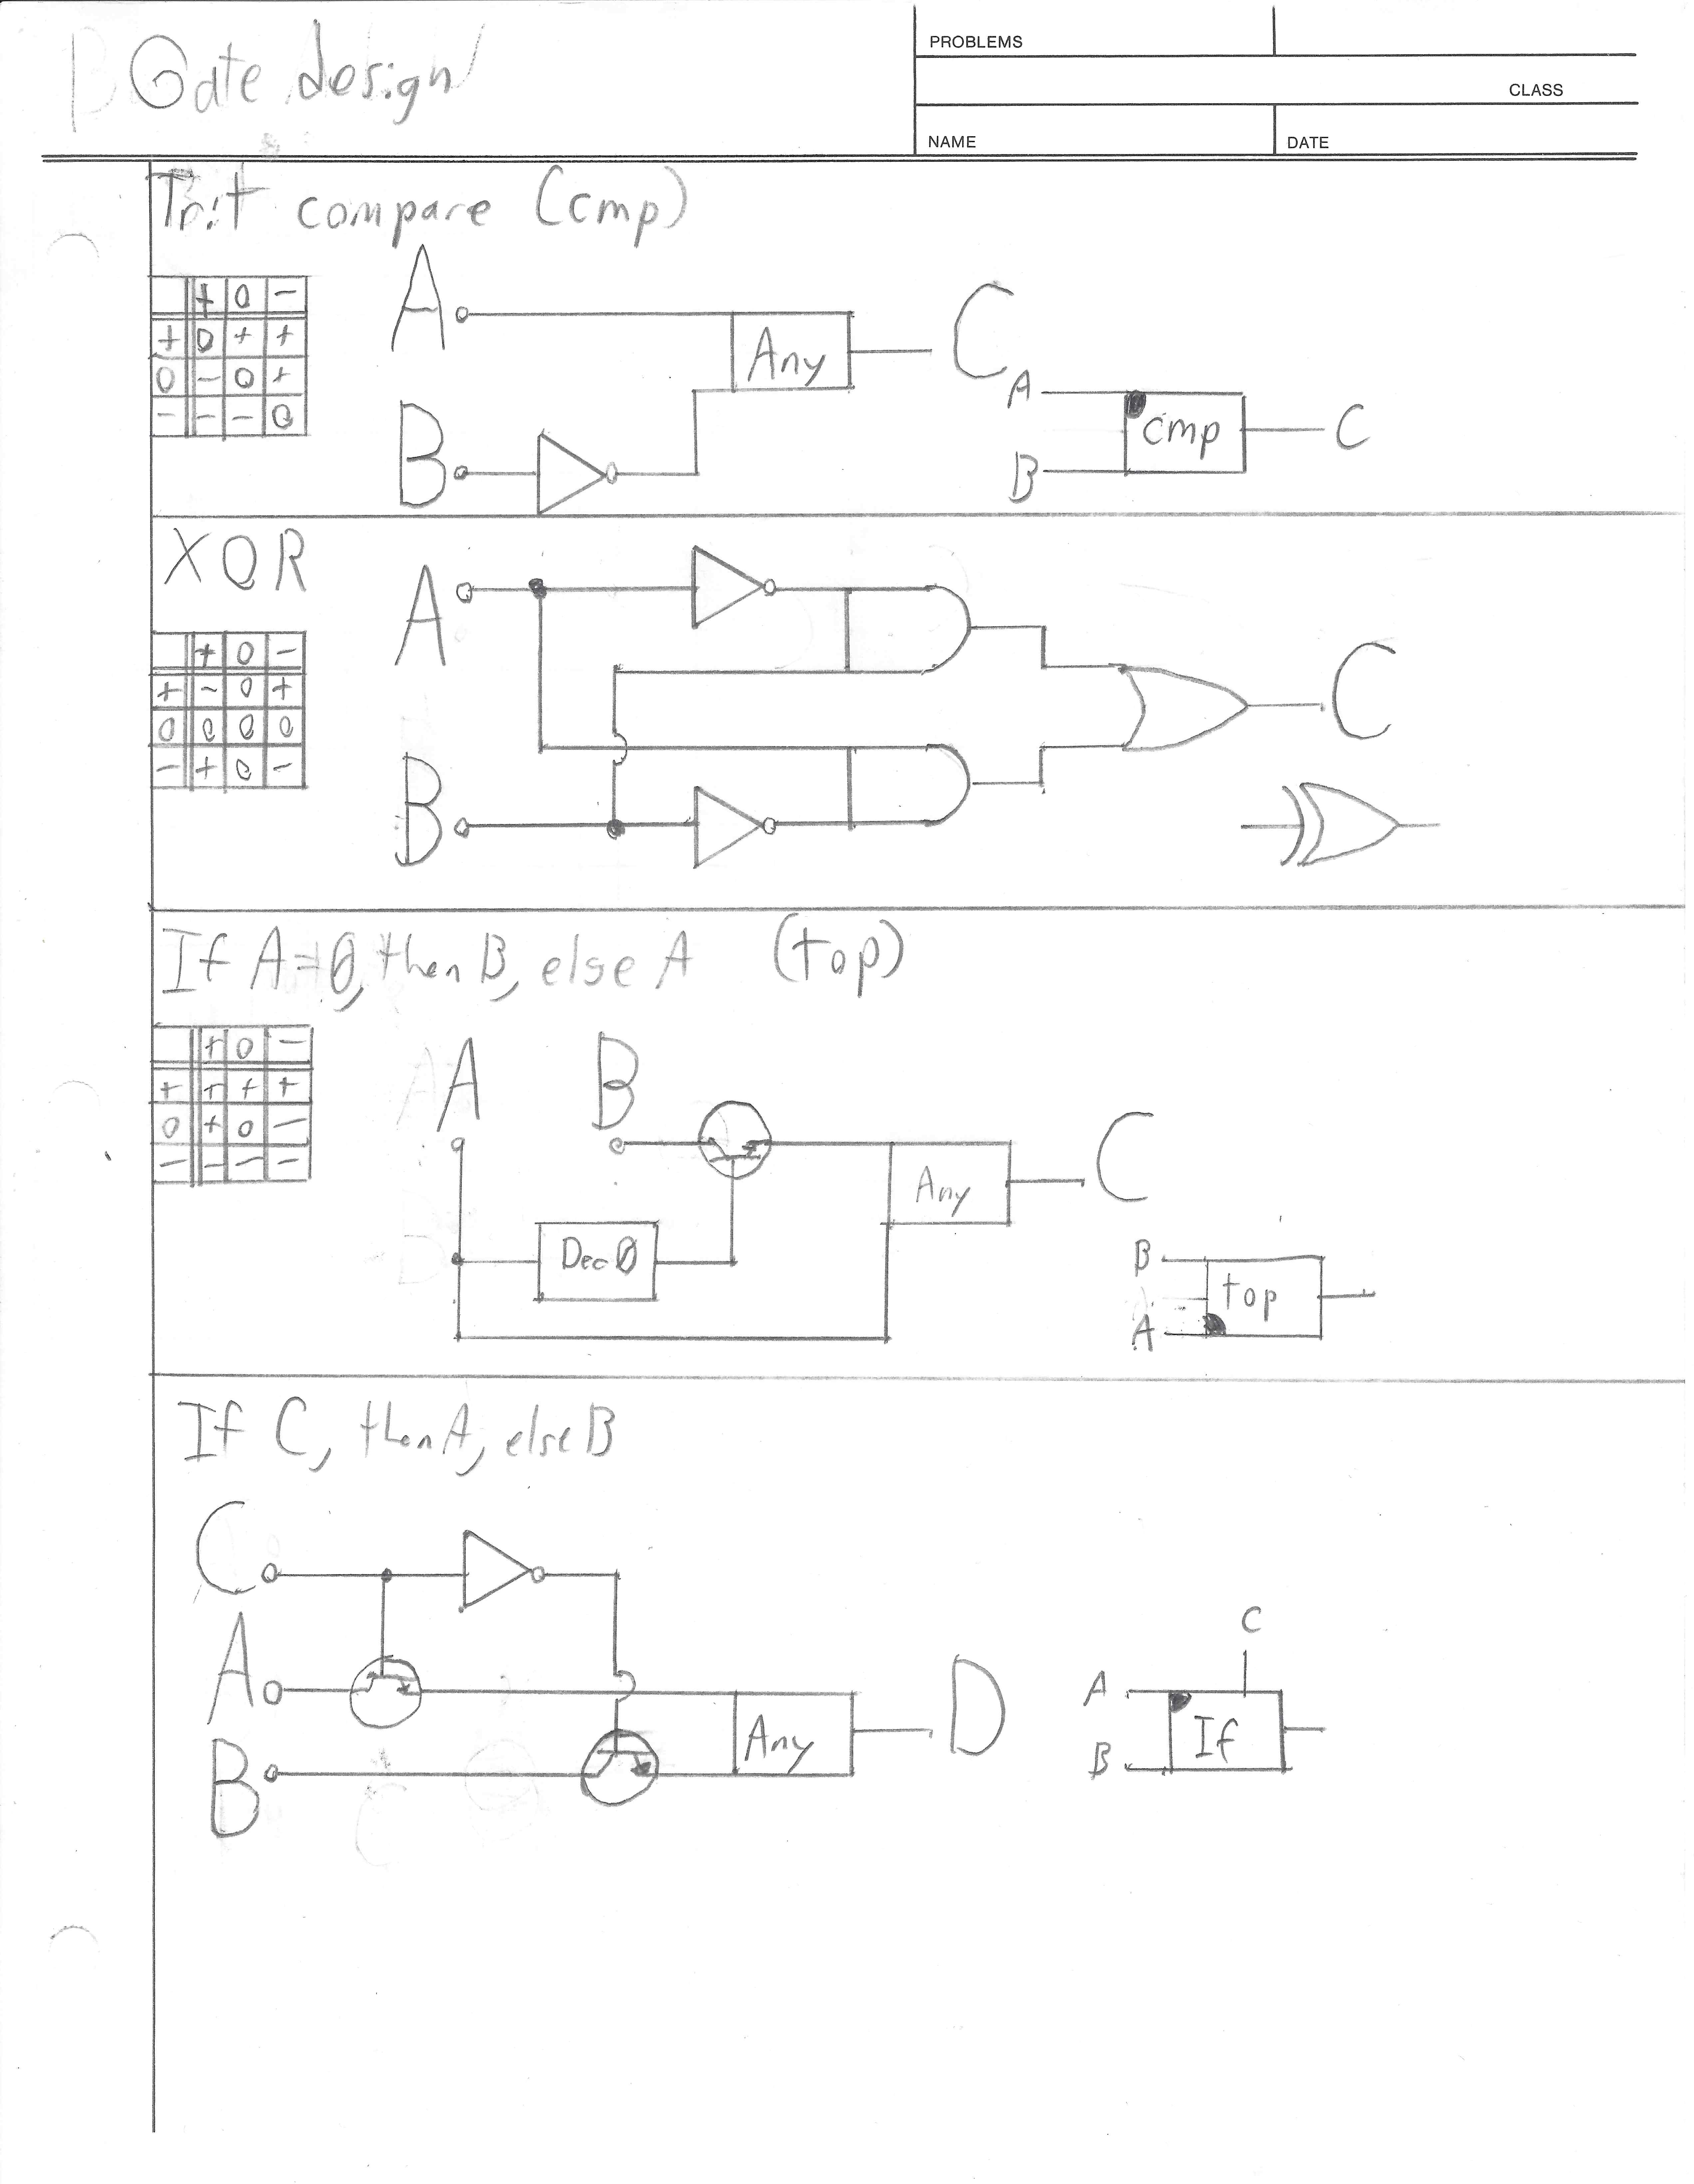 Gate design
PROBLEMS
CLASS
NAME
DATE
Trit compare (cmp)
+ 0 -
+ 0 + +
0 - 0 +
- - - 0
A
B
Any
C
A
B
cmp
C
XOR
+ 0 -
+ - 0 +
0 0 0 0
- + 0 -
A
B
C
If A=0, then B, else A (top)
+ 0 -
+ + + +
0 + 0 -
- - - -
A
B
Dec 0
Any
C
B
A
top
If C, then A, else B
C
A
B
Any
D
C
A
B
If